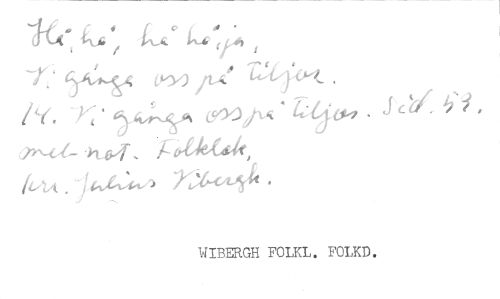 Hå, hå, hå hå, ja,
Vi gånga oss på tiljor.
14. Vi gånga oss på tiljor. Sid. 53.
mel-not. Folklek,
Julius Vibergh.
WIBERGH FOLKL. FOLKD.